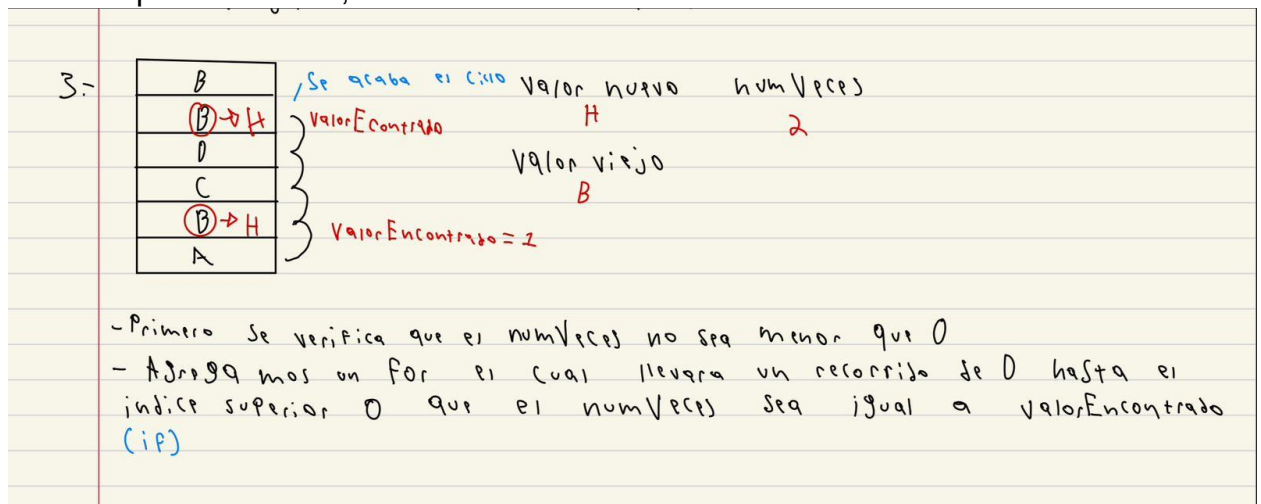 3:-
B , Se acaba el ciclo Valor nuevo numVeces
B → H ValorEcontrado H 2
D Valor viejo
C B
B → H ValorEncontrado = 1
A
- Primero se verifica que el numVeces no sea menor que 0
- Agrega mos un for el cual llevara un recorrido de 0 hasta el
indice superior O que el numVeces sea igual a valorEncontrado
(if)